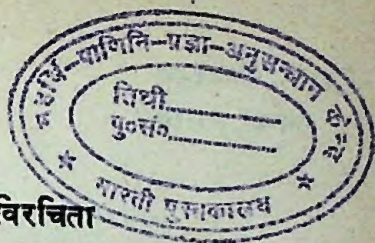 महर्षि-पाणिनि-प्रज्ञा-अनुसन्धान केन्द्र
तिथी..................
पु०सं०..................
भारती पुस्तकालय
विरचिता